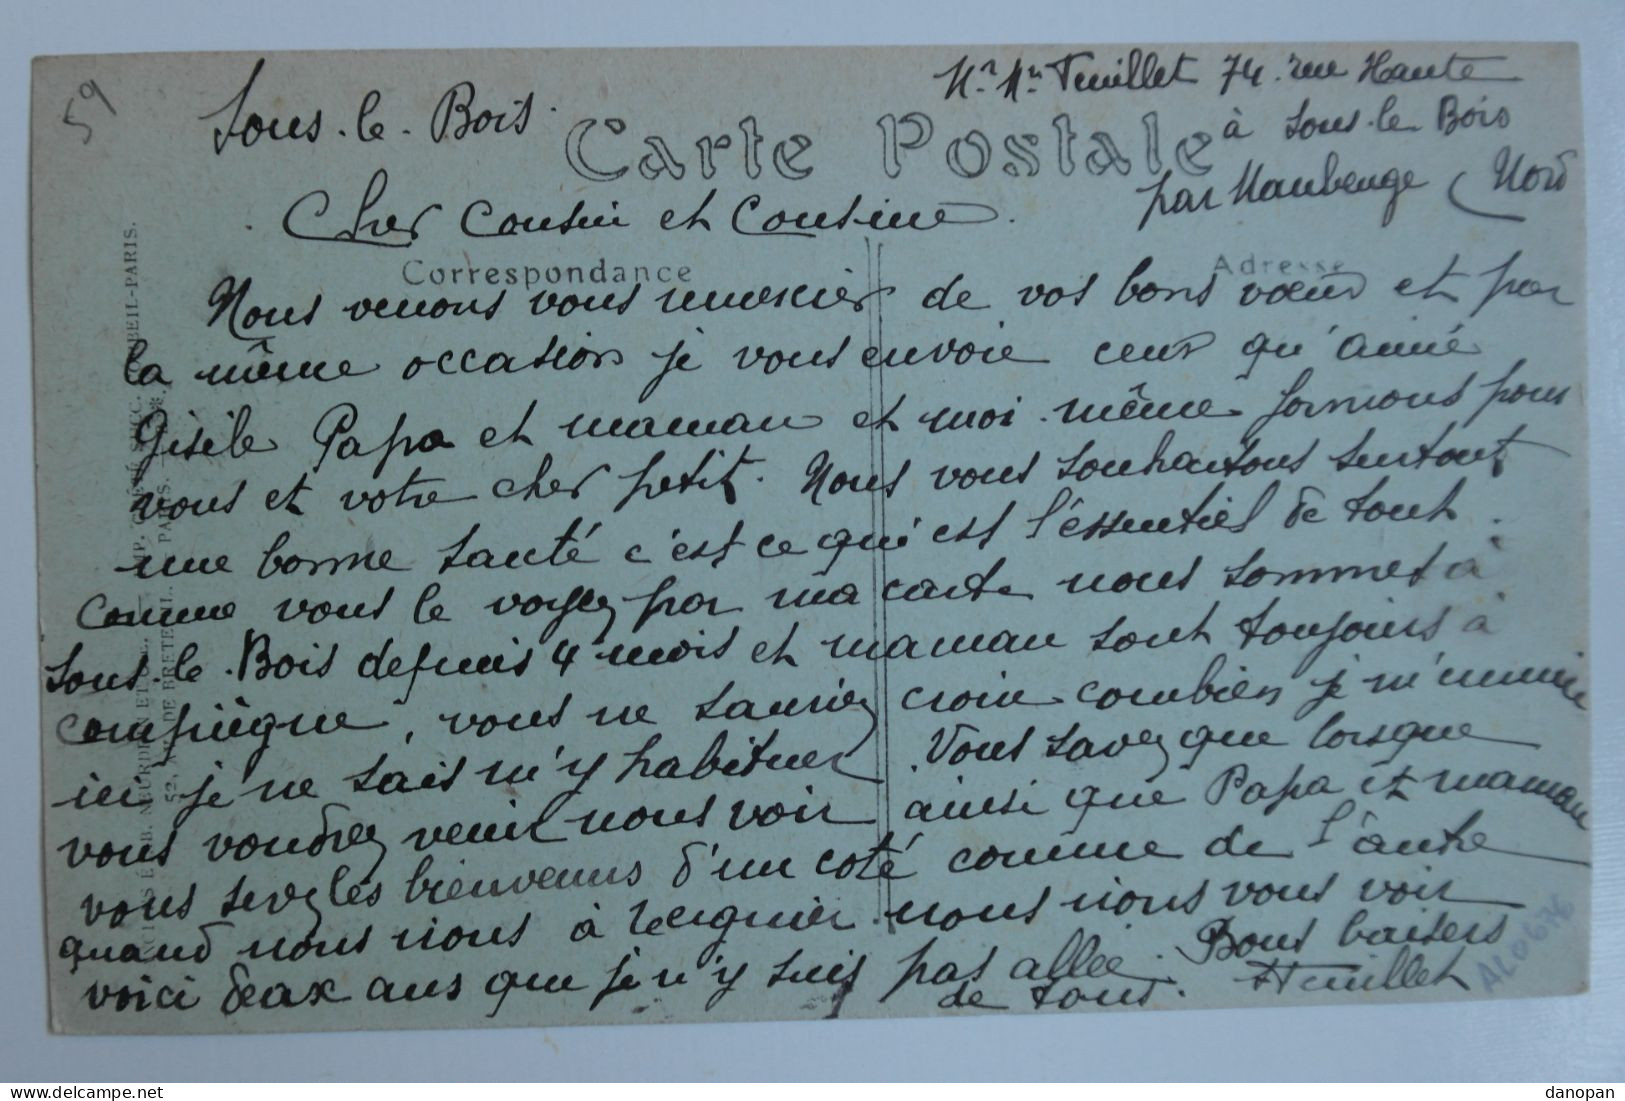 59
Sous-le-Bois.
Mr Mme Feuillet 74. rue Haute
à Sous-le Bois
par Maubeuge (Nord
Carte Postale
Cher Cousin et Cousine.
Correspondance
Adresse
Nous venons vous remercier de vos bons vœux et par
la même occasion je vous envoie ceux qu'aimé
Gisèle Papa et maman et moi-même formons pour
vous et votre cher petit. Nous vous souhaitons surtout
une bonne santé c'est ce qui est l'éssentiel de tout.
Comme vous le voyez par ma carte nous sommes à
Sous-le-Bois depuis 4 mois et maman sont toujours à
Compiègne, vous ne sauriez croire combien je m'ennuie
ici je ne sais m'y habituer. Vous savez que lorsque
vous voudrez venir nous voir ainsi que Papa et maman
vous serez les bienvenus d'un coté comme de l'autre
quand nous irons à Tergnier nous irons vous voir
voici deax ans que je n'y suis pas allée. Bons baisers
de tous. Feuillet
AL0676
BEIL-PARIS.
52, AV. DE BRETEUIL. PARIS.
delcampe.net
danopan